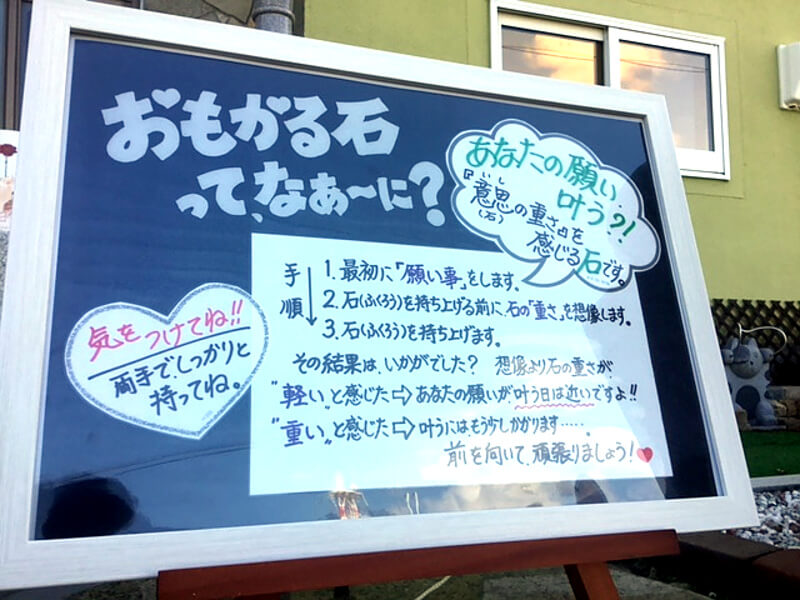 おもかる石
って、なぁ〜に?
あなたの願い、
叶う?!
『意思の重さ』を
いし
(石)
感じる石です。
手順
1. 最初に「願い事」をします。
2. 石(ふくろう)を持ち上げる前に、石の「重さ」を想像します。
3. 石(ふくろう)を持ち上げます。
その結果は、いかがでした? 想像より石の重さが、
"軽い"と感じた⇨あなたの願いが叶う日は近いですよ!!
"重い"と感じた⇨叶うには、もう少しかかります……。
前を向いて、頑張りましょう!♥
気をつけてね!!
両手で、しっかりと
持ってね。